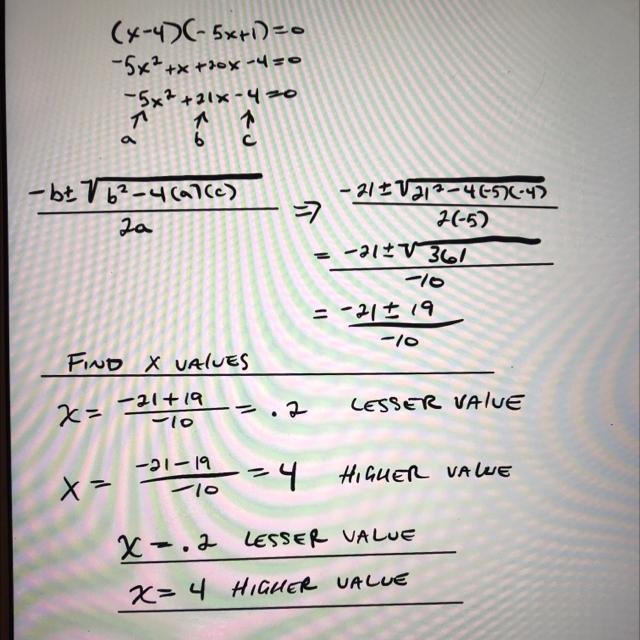 (x-4)(-5x+1)=0
-5x²+x+20x-4=0
-5x²+21x-4=0
↑ ↑ ↑
a b c
-b±√b²-4(a)(c) / 2a ⇒ -21±√21²-4(-5)(-4) / 2(-5)
= -21±√361 / -10
= -21±19 / -10
FIND X VALUES
x= -21+19 / -10 = .2 LESSER VALUE
x= -21-19 / -10 = 4 HIGHER VALUE
x=.2 LESSER VALUE
x=4 HIGHER VALUE